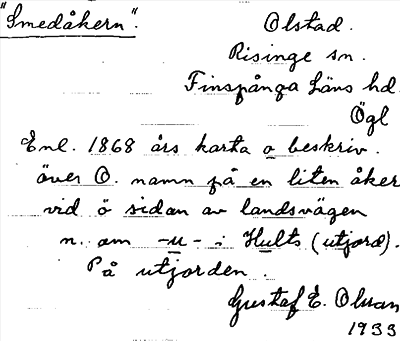 "Smedåkern".
Olstad.
Risinge sn.
Finspånga Läns hd.
Ögl
Enl. 1868 års karta o beskriv.
över O. namn på en liten åker
vid ö sidan av landsvägen
n. om -u- i Hults (utjord).
På utjorden.
Gustaf E. Olsson
1933